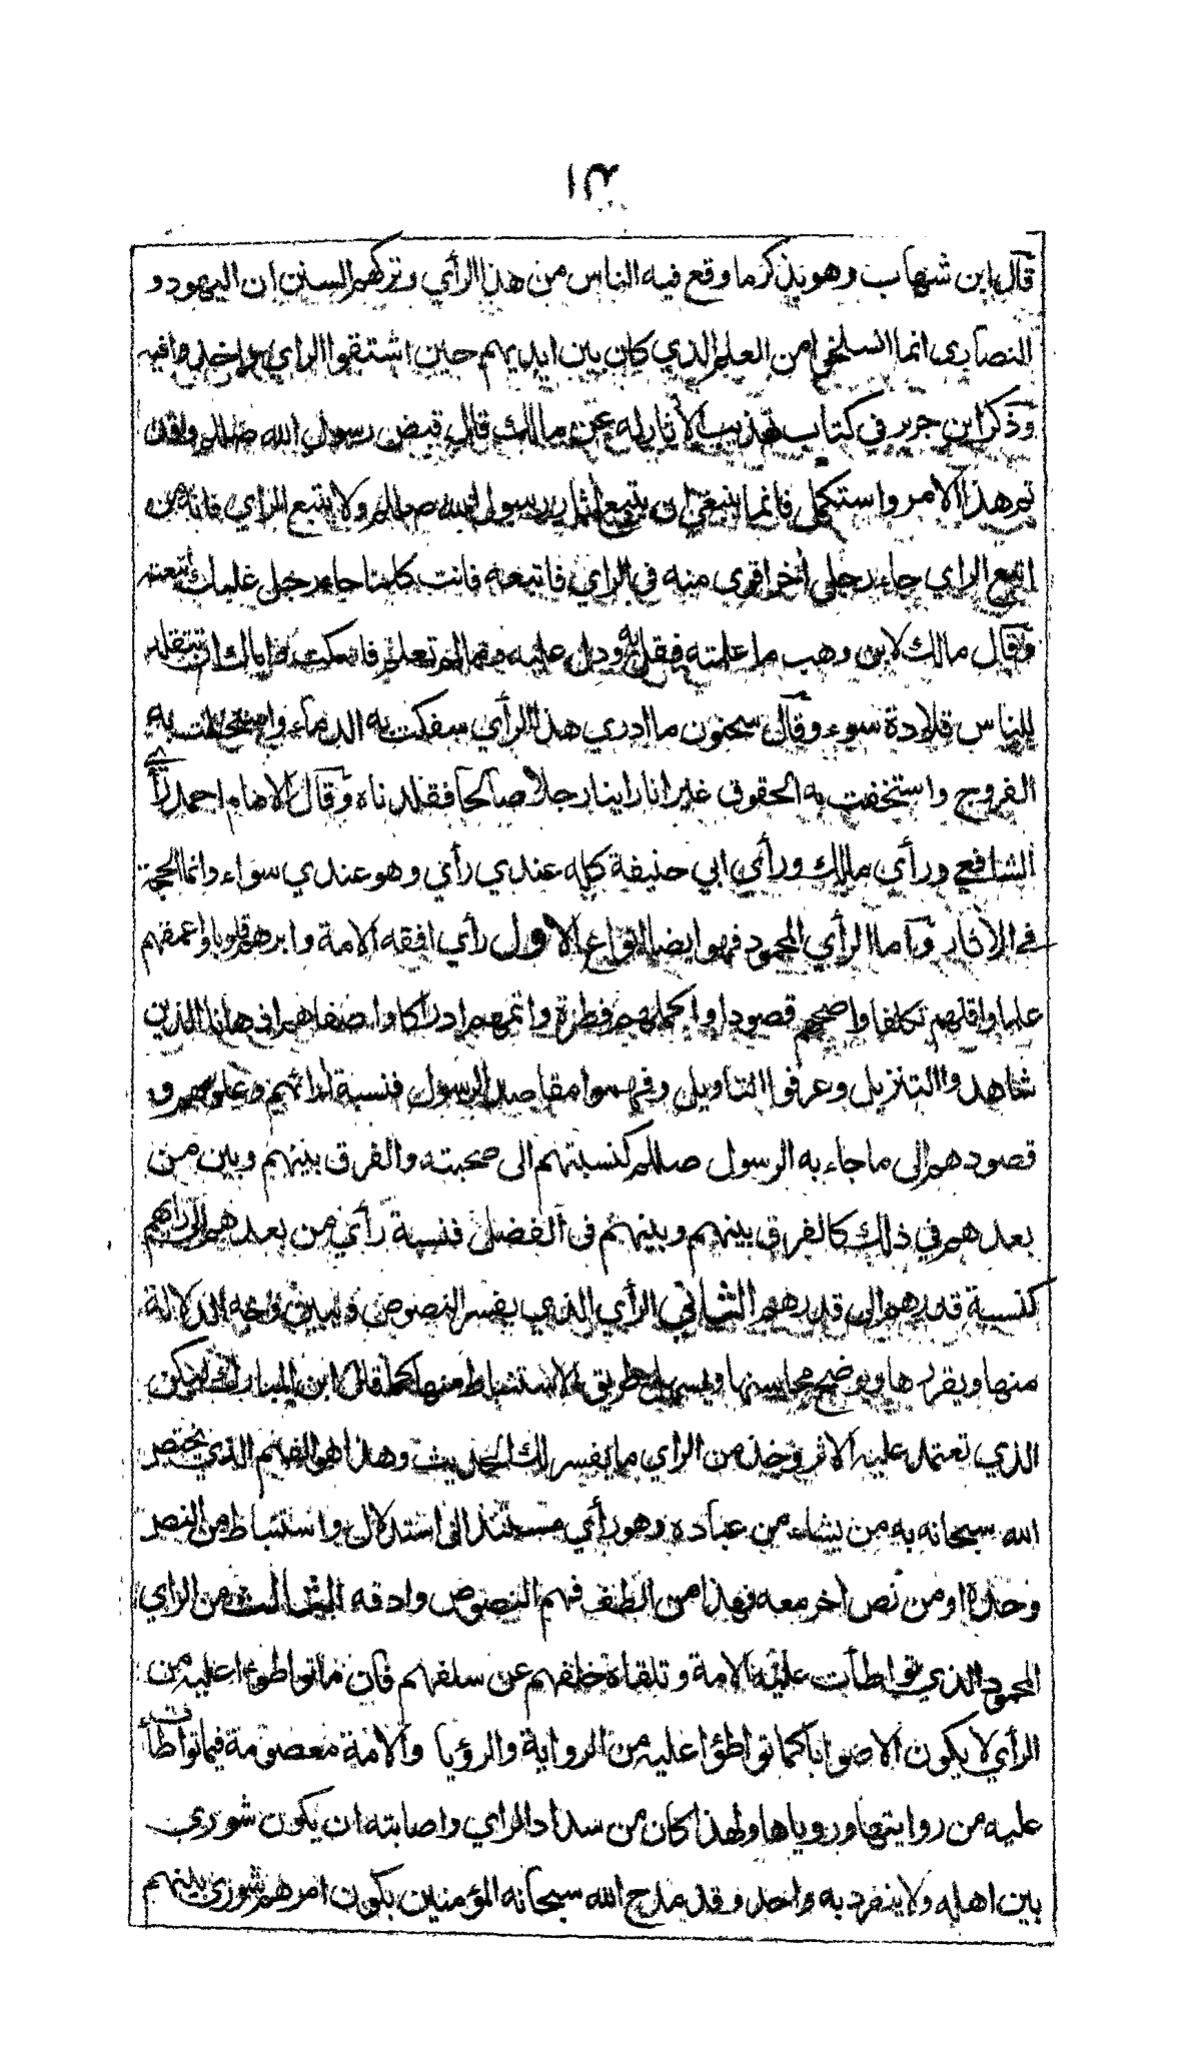 قال ابن شهاب وهو يذكر ما وقع فيه الناس من هذا الرأي وتركهم السنن ان اليهود و
النصارى انما انسلخوا من العلم الذي كان بين ايديهم حين اشتقوا الراي واخذوا فيه
وذكر ابن جرير في كتاب تهذيب الأثار له عن مالك قال قبض رسول الله صللم وقد
تم هذا الامر واستكمل فانما ينبغي ان يتبع أثار رسول الله صللم ولا يتبع الراي فانه من
اتبع الراي جاء رجل أخر اقوى منه في الراي فاتبعه فانت كلما جاء رجل غلبك اتبعته
وقال مالك لابن وهب ما علمته فقل به ودل عليه وما لم تعلم فاسكت واياك ان تتقلد
للناس قلادة سوء وقال سحنون ما ادري هذا الرأي سفكت به الدماء واستحلت به
الفروج واستخفت به الحقوق غير انا راينا رجلا صالحا فقلدناه وقال الامام احمد رأي
الشافعي ورأي مالك ورأي ابي حنيفة كله عندي رأي وهو عندي سواء وانما الحجة
في الأثار واما الرأي المحمود فهو ايضا انواع الاول رأي افقه الامة وابرهم قلوبا واعمقهم
علما واقلهم تكلفا واصحهم قصودا واكملهم فطرة واتمهم ادراكا واصفاهم اذهانا الذين
شاهدوا التنزيل وعرفوا التاويل وفهموا مقاصد الرسول فنسبة ارائهم وعلومهم و
قصودهم الى ما جاء به الرسول صللم كنسبتهم الى صحبته والفرق بينهم وبين من
بعدهم في ذلك كالفرق بينهم وبينهم في الفضل فنسبة رأي من بعدهم الى رأيهم
كنسبة قدرهم الى قدرهم الثاني الرأي الذي يفسر النصوص ويبين وجه الدلالة
منها ويقررها ويوضح محاسنها ويسهل طريق الاستنباط منها كما قال ابن المبارك ليكن
الذي تعتمد عليه الاثر وخذ من الراي ما يفسر لك الحديث وهذا هو الفهم الذي يختص
الله سبحانه به من يشاء من عباده وهو رأي مستند الى استدلال واستنباط من النص
وحده او من نص أخر معه فهذا من الطف فهم النصوص وادقه الثالث من الراي
المحمود الذي تواطأت عليه الامة وتلقاه خلفهم عن سلفهم فان ما تواطؤا عليه من
الرأي لا يكون الا صوابا كما تواطؤا عليه من الرواية والرؤيا والامة معصومة فيما تواطأت
عليه من روايتها ورؤياها ولهذا كان من سداد الراي واصابته ان يكون شورى
بين اهله ولا ينفرد به واحد وقد مدح الله سبحانه المؤمنين بكون امرهم شورى بينهم